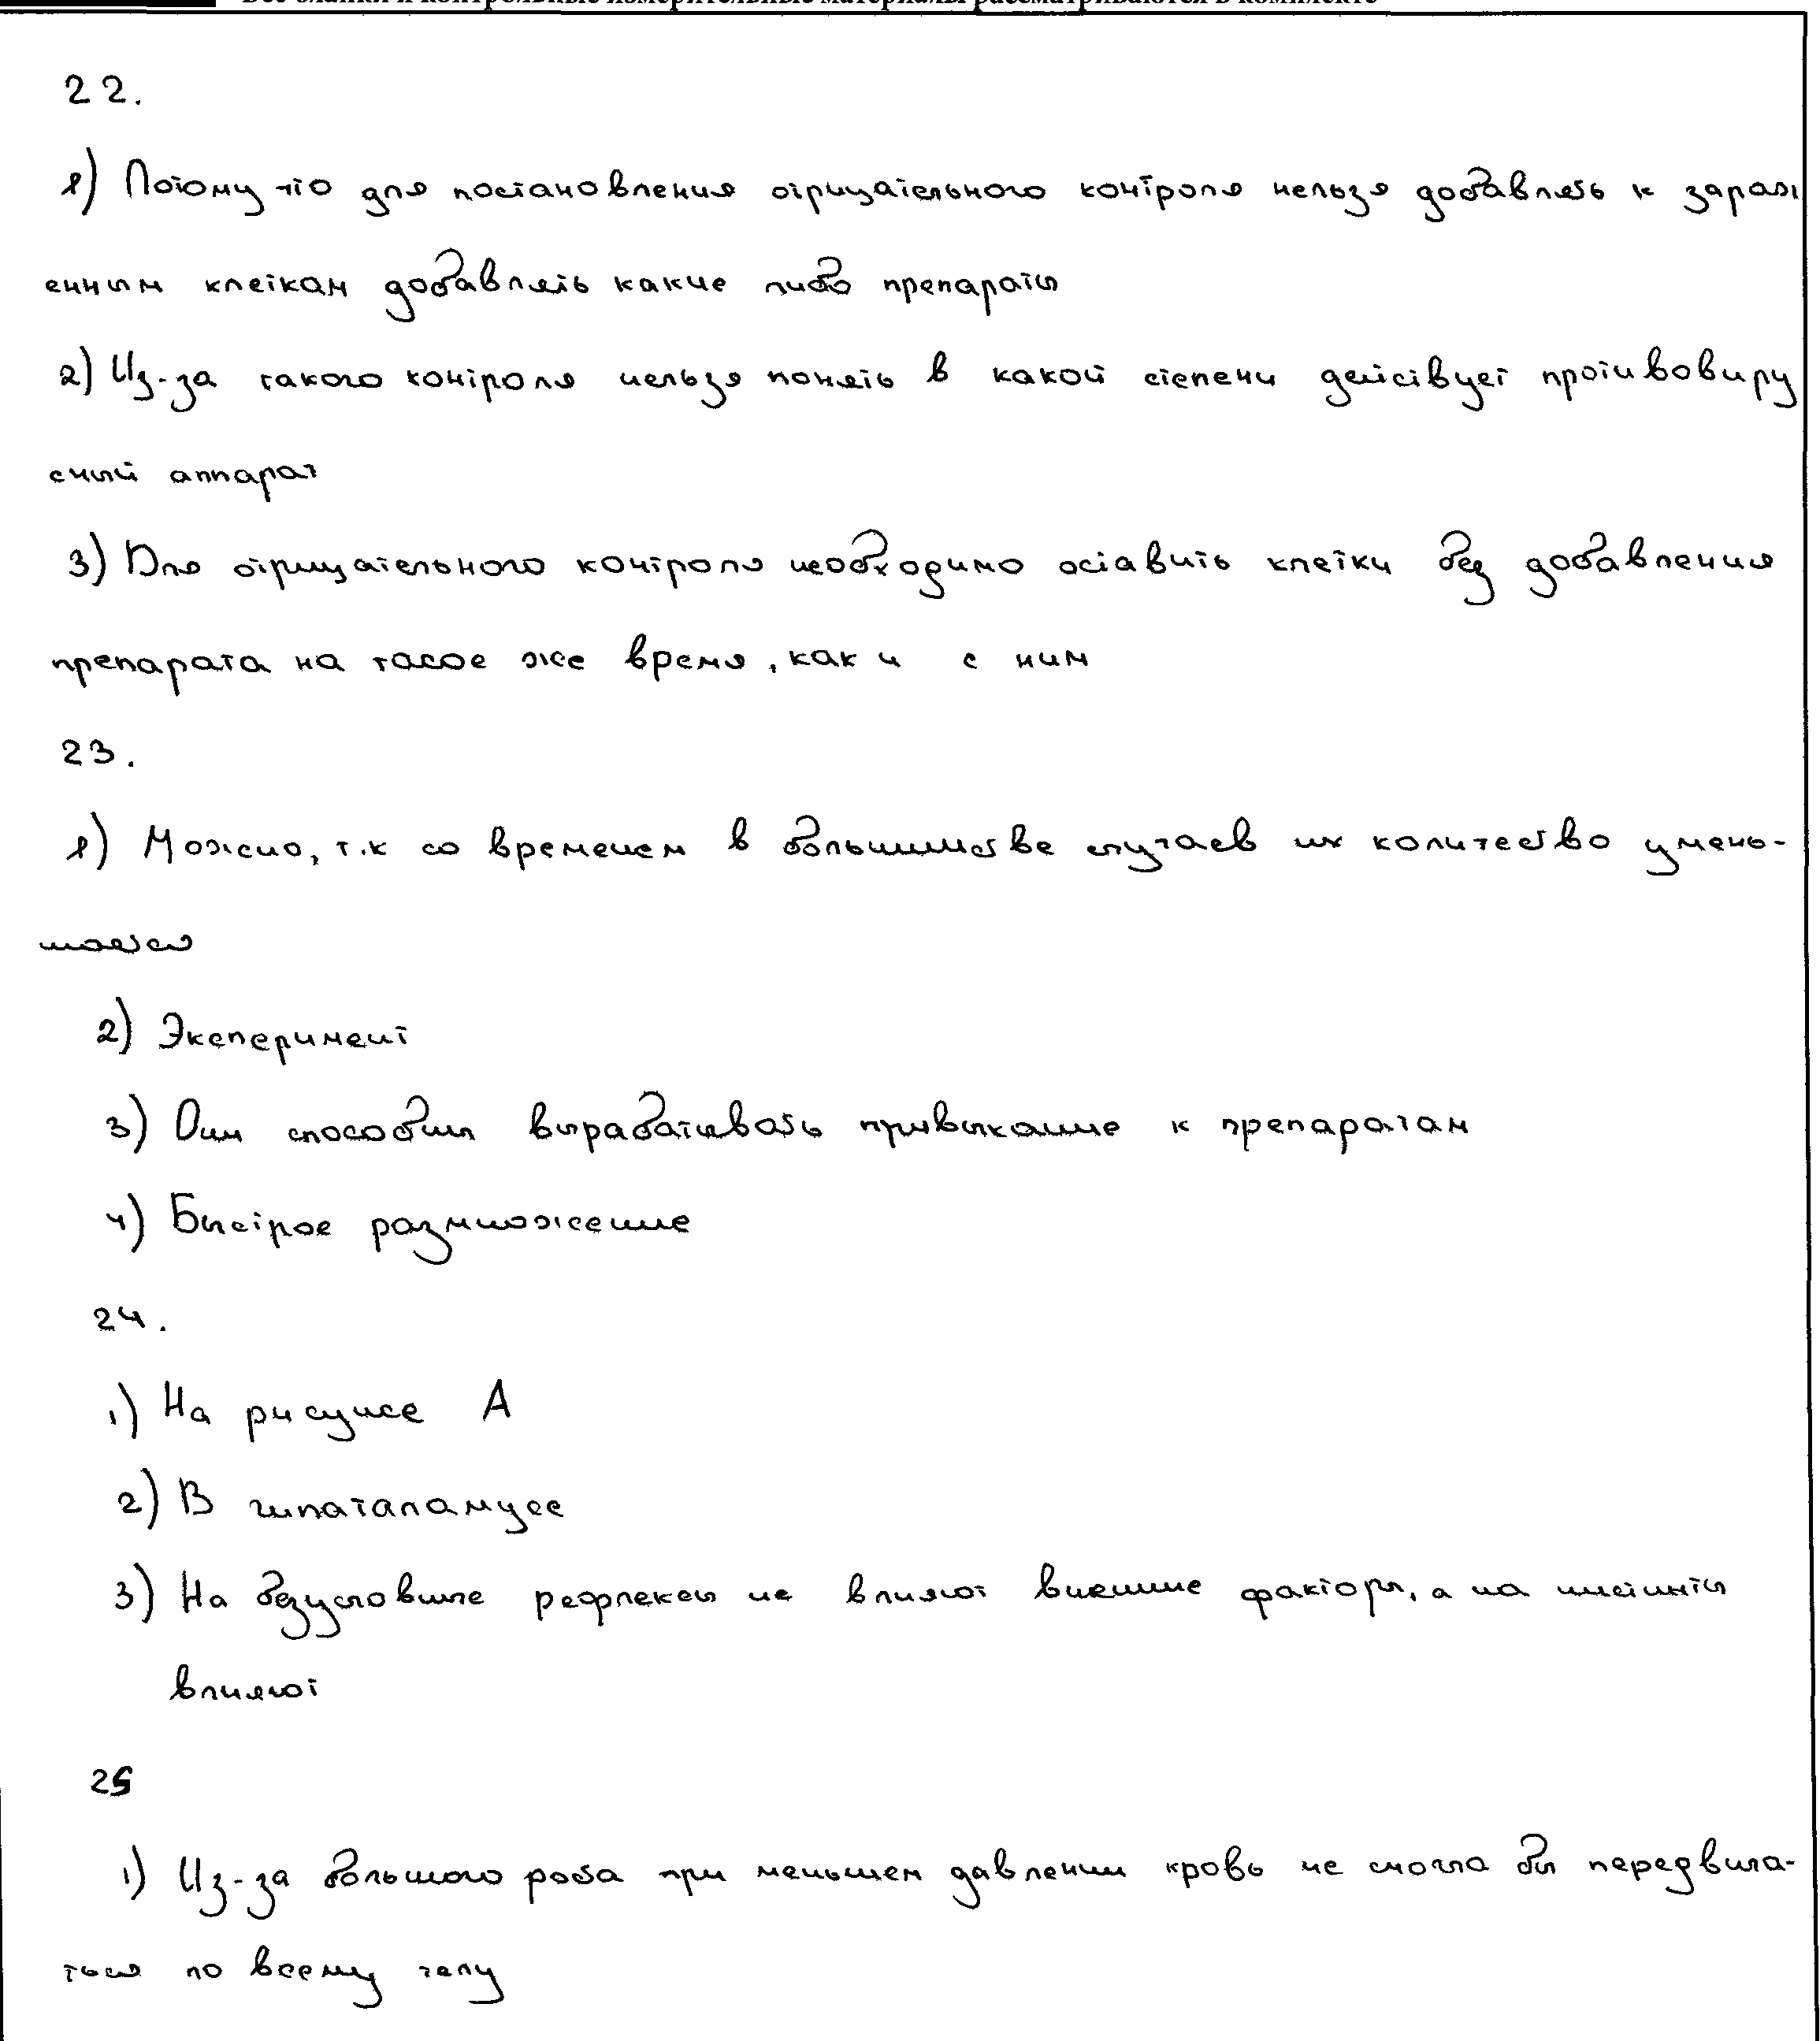 Все бланки и контрольные измерительные материалы рассматриваются в комплекте
22.
1) Потому что для постановления отрицательного контроля нельзя добавлять к зараж
енным клеткам добавлять какие либо препараты
2) Из-за такого контроля нельзя понять в какой степени действует противовиру
сный аппарат
3) Для отрицательного контроля необходимо оставить клетки без добавления
препарата на такое же время, как и с ним
23.
1) Можно, т.к со временем в большинстве случаев их количество умень-
шается
2) Эксперимент
3) Они способны вырабатывать привыкание к препаратам
4) Быстрое размножение
24.
1) На рисунке А
2) В гипаталамусе
3) На безусловные рефлексы не влияют внешние факторы, а на инстинкты
влияют
25
1) Из-за большого роста при меньшем давлении кровь не смогла бы передвига-
ться по всему телу